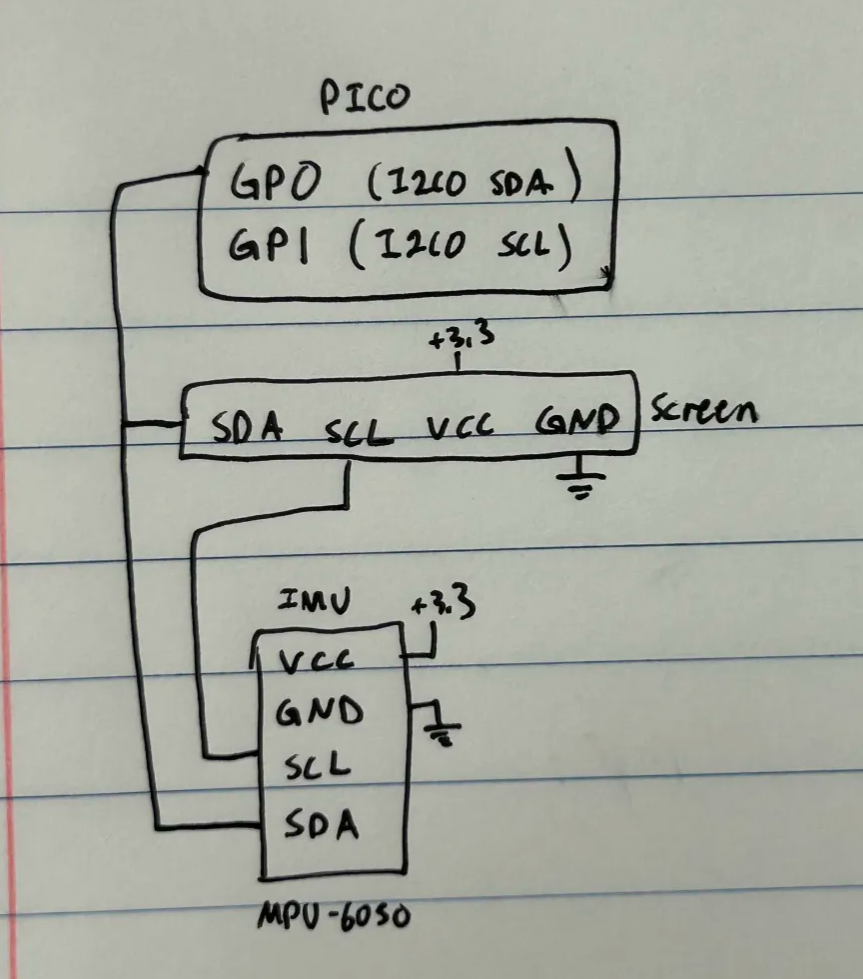 PICO
GP0 (I2C0 SDA)
GP1 (I2C0 SCL)
+3.3
SDA SCL VCC GND
Screen
IMU
+3.3
VCC
GND
SCL
SDA
MPU-6050